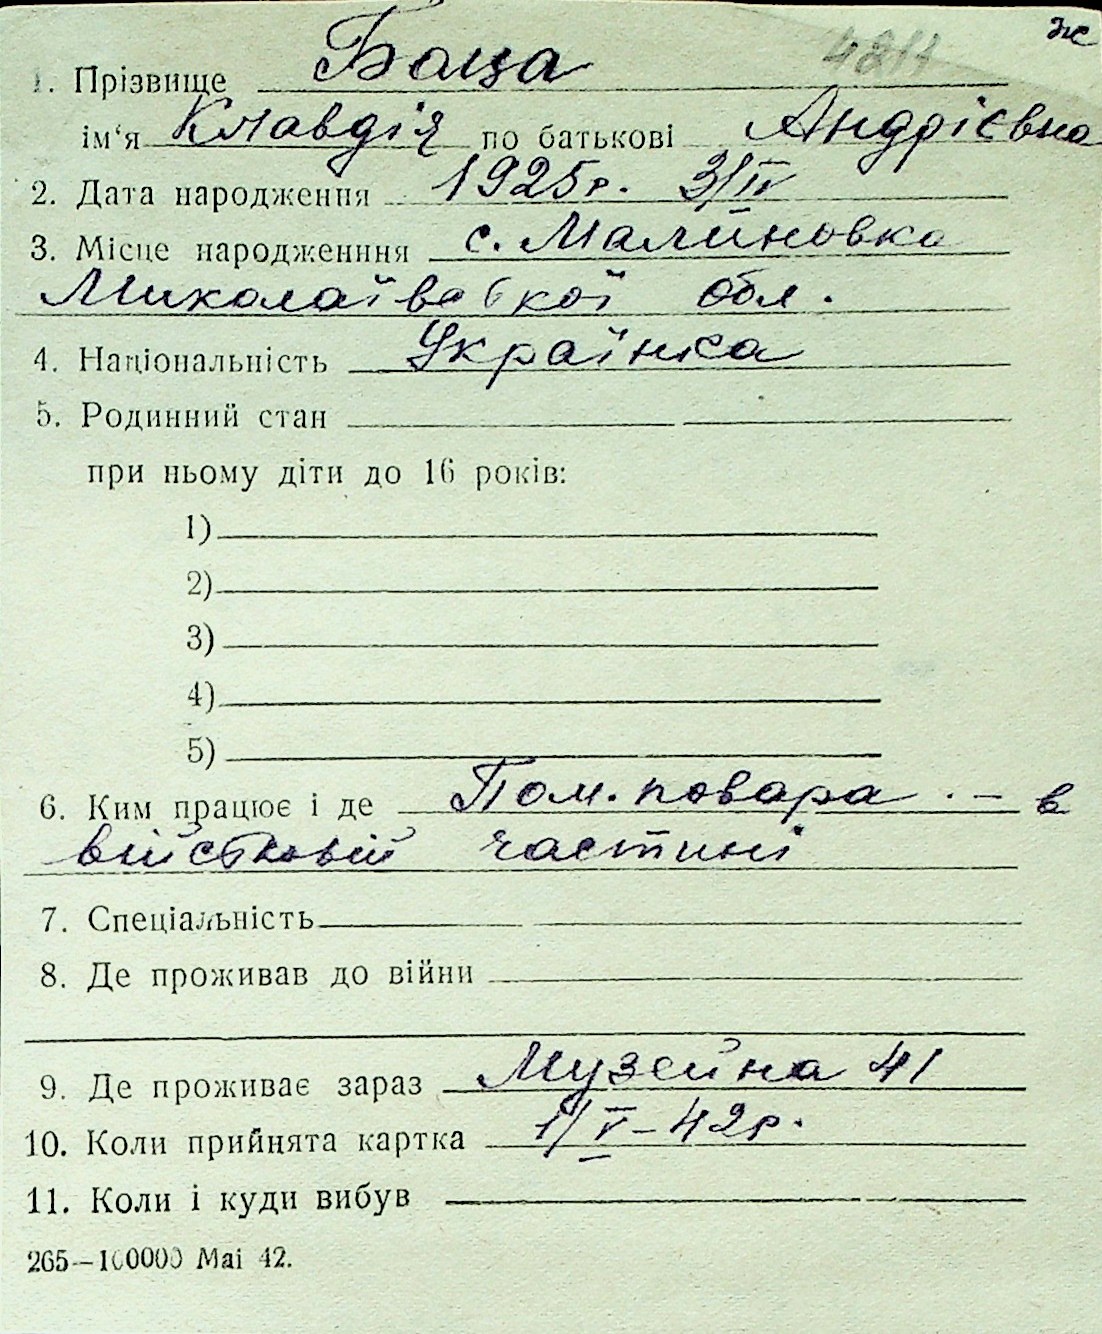 ж
4811
1. Прізвище Боца
ім‘я Клавдія по батькові Андрієвна
2. Дата народження 1925р. 3/IV
3. Місце народженння с. Малиновка
Миколаївської обл.
4. Національність Українка
5. Родинний стан
при ньому діти до 16 років:
1)
2)
3)
4)
5)
6. Ким працює і де Пом. повара - в
військовій частині
7. Спеціальність
8. Де проживав до війни
9. Де проживає зараз Музейна 41
10. Коли прийнята картка 1/V-42р.
11. Коли і куди вибув
265—100000 Маі 42.